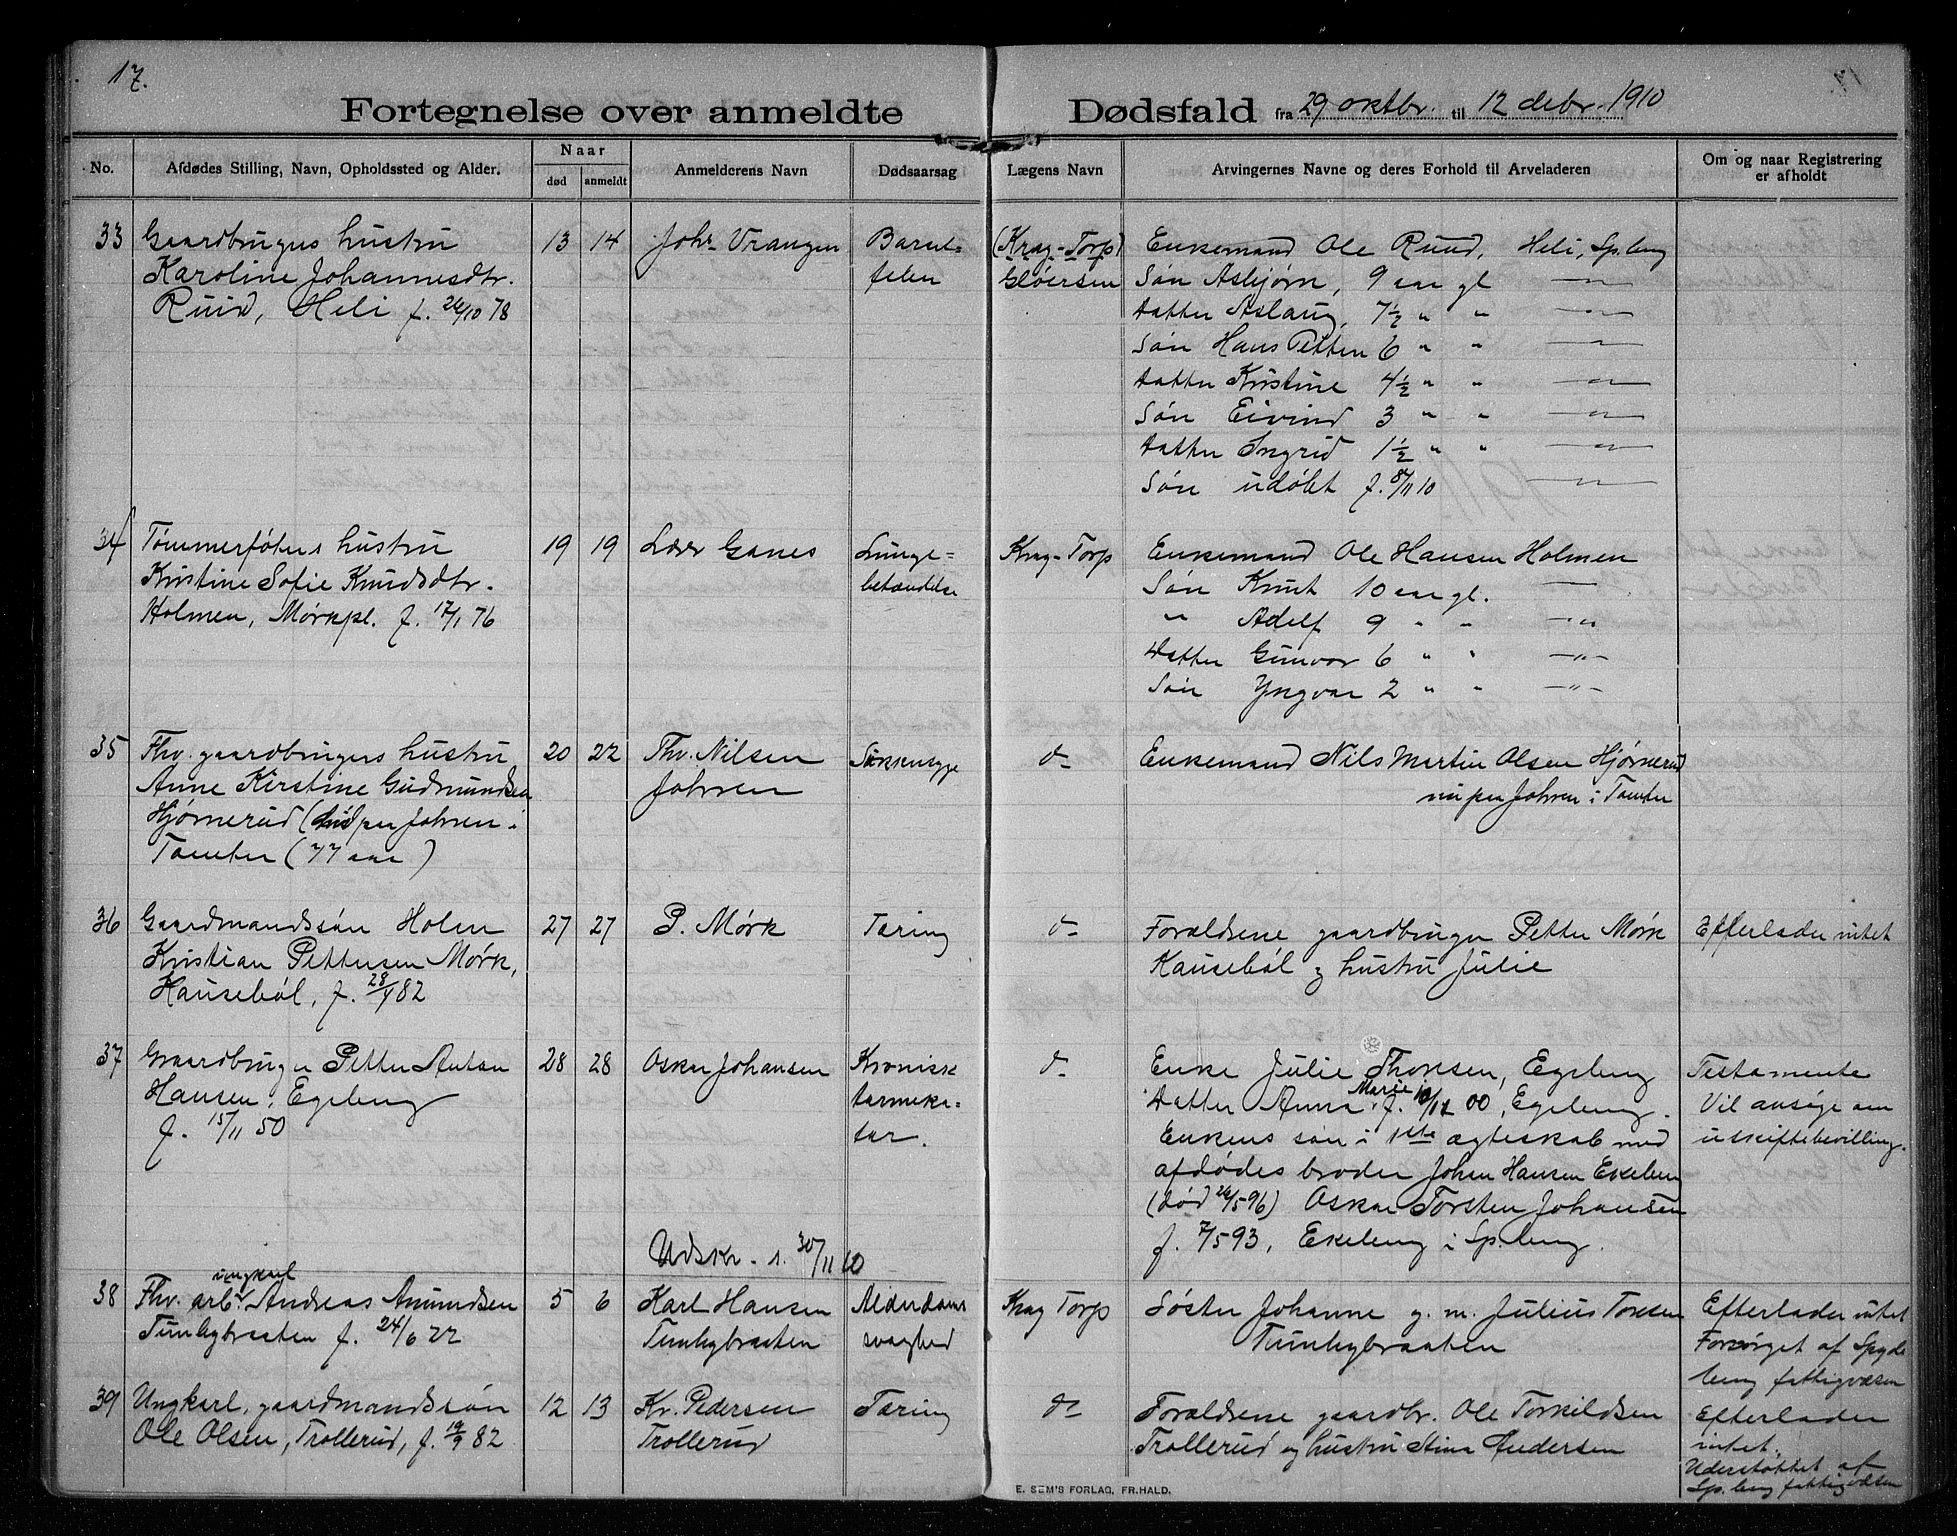 17.
Fortegnelse over anmeldte Dødsfald fra 29 oktbr. til 12 debr. 1910
No. Afdødes Stilling, Navn, Opholdssted og Alder. Naar død anmeldt Anmelderens Navn Dødsaarsag Lægens Navn Arvingernes Navne og deres Forhold til Arveladeren Om og naar Registrering er afholdt
33 Gaardbrugers hustru 13 14 Johs Vrangen Barsel- (Krag-Torp) Enkemand Ole Ruud, Heli, Sp.berg
Karoline Johannesdtr. feber Gløersen Søn Asbjørn, 9 aar gl —"—
Ruud, Heli f. 26/10 78 Datter Aslaug, 7½ " " —"—
Søn Hans Petter 6 " " —"—
Datter Kristine 4½ " " —"—
Søn Eivind 3 " " —"—
Datter Ingrid 1½ " " —"—
Søn udøbt f. 8/11 10 —"—
34 Tømmerfløters hustru 19 19 Lærer Ganes Lunge- Krag-Torp Enkemand Ole Hansen Holmen
Kristine Sofie Knudsdtr. betændelse Søn Knut 10 aar gl. —"—
Holmen, Mørkpl. f. 17/1 76 " Adolf 9 " " —"—
Datter Gunvor 6 " " —"—
Søn Yngvar 2 " " —"—
35 Fhv. gaardbrugers hustru 20 22 Thv. Nilsen d- Enkemand Nils Martin Olsen Hjørnerud
Anne Kirstine Gudmundsen Johren nu paa Johren i Tomter
Hjørnerud ( paa Johren i
Tomter (77 aar)
36 Gaardmandssøn Holm 27 27 P. Mørk Tæring d- Forældrene gaardbruger Petter Mørk Efterlader intet
Kristian Pettersen Mørk, Kausebøl og hustru Julie
Kausebøl, f. 28/1 82
37 Gaardbruger Petter Anton 28 28 Oskar Johansen Kronisk d- Enke Julie Thoresen, Egeberg Testamente
Hansen, Egeberg tarmka- Datter Anna Marie f. 10/12 00, Egeberg. Vil ansøge om
f. 15/11 50 tar. Enkens søn i 1ste ægteskab med uskiftebevilling.
afdødes broder Johan Hansen Ekeberg
(død 26/5 96) Oskar Torsten Johansen
f. 7/5 93, Ekeberg i Sp.berg.
Udskr. s. 30/11 10
38 Fhv. arb. ungkarl Andreas Amundsen 5 6 Karl Hansen Alderdoms Krag Torp Søster Johanne g. m. Julius Toresen Efterlader intet
Tunbybraaten f. 24/6 22 Tunbybraaten svaghed Tunbybraaten Forsørget af Spyde
berg fattigvæsen
39 Ungkarl, gaardmandssøn 12 13 Kr. Pedersen Tæring d- Forældrene gaardbr. Ole Torkildsen Efterlader
Ole Olsen, Trollerud, f. 19/9 82 Trollerud Trollerud og hustru Stina Andersen intet.
Understøttet af
Sp.berg fattigvæsen
E. SEM'S FORLAG, FR.HALD.